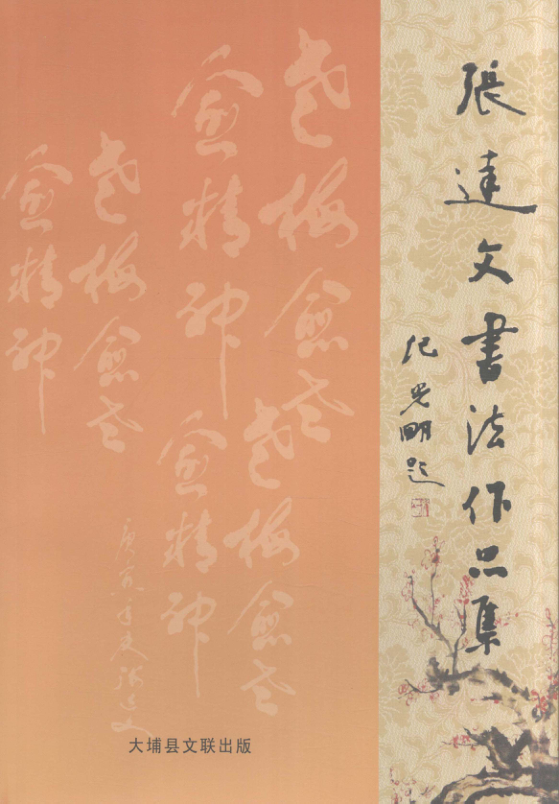 張達文書法作品集
纪光明题
老梅愈老
愈精神
老梅愈老
愈精神
老梅愈老
愈精神
庚寅年夏张达文
大埔县文联出版